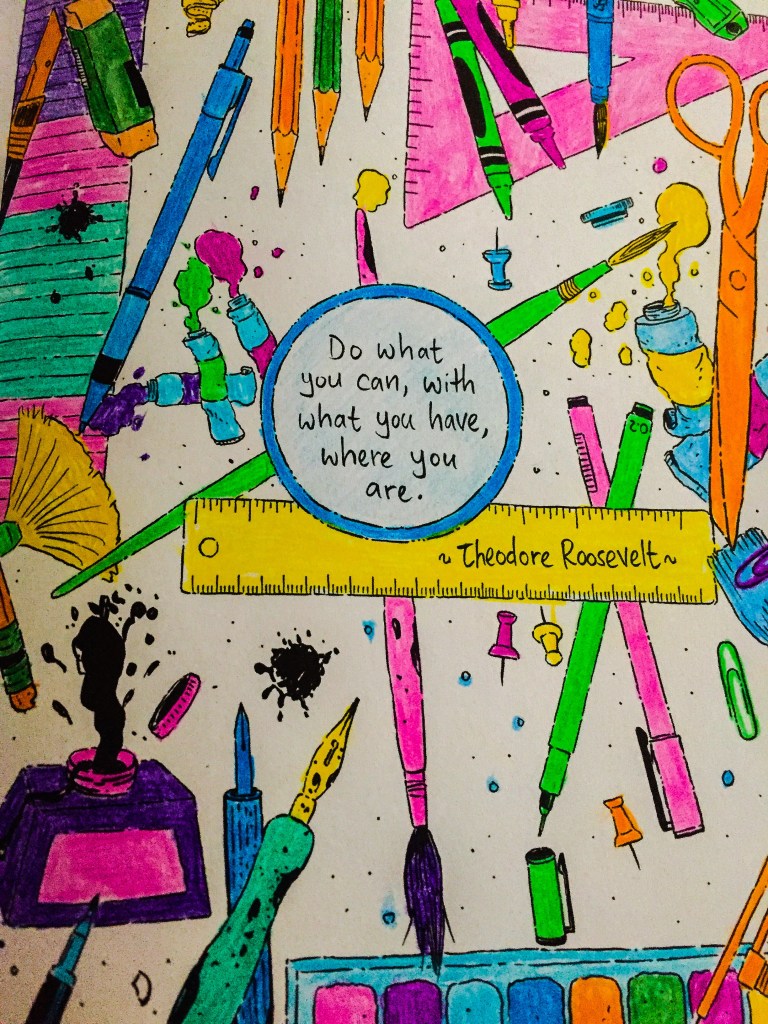 Do what
you can, with
what you have,
where you
are.
~ Theodore Roosevelt ~
0.2